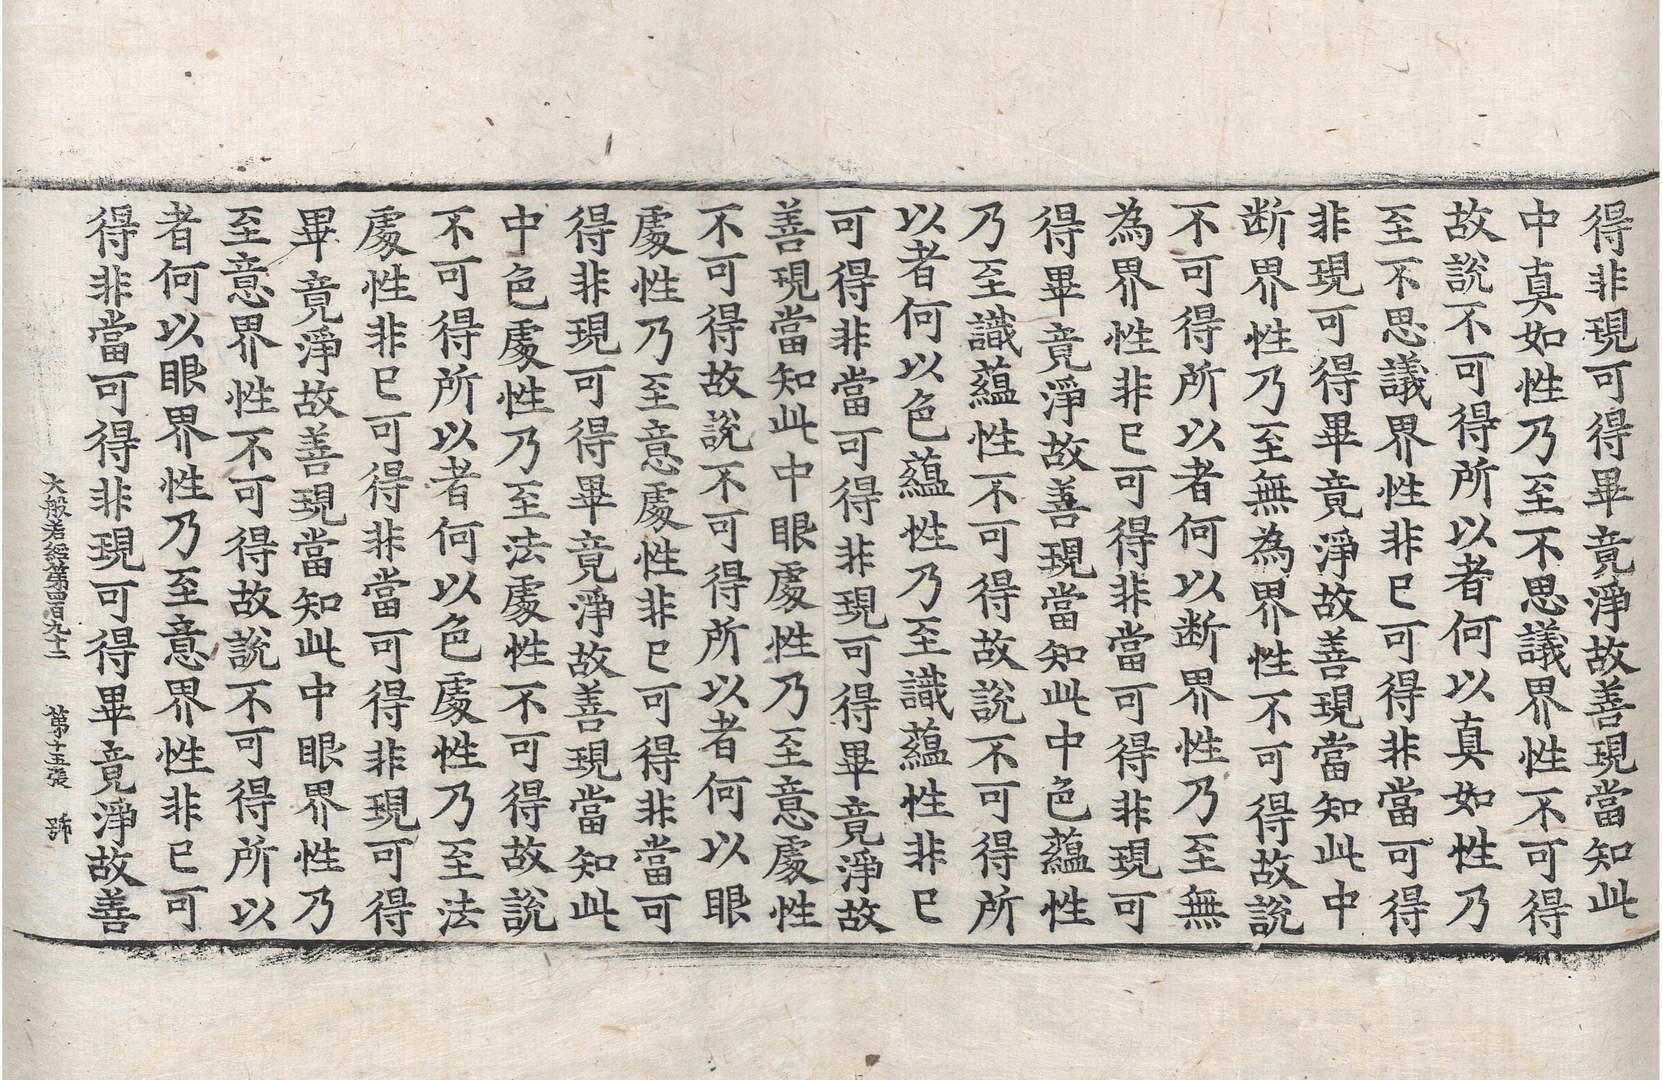 得非現可得畢竟淨故善現當知此
中真如性乃至不思議界性不可得
故說不可得所以者何以真如性乃
至不思議界性非已可得非當可得
非現可得畢竟淨故善現當知此中
断界性乃至無為界性不可得故說
不可得所以者何以断界性乃至無
為界性非已可得非當可得非現可
得畢竟淨故善現當知此中色蘊性
乃至識蘊性不可得故說不可得所
以者何以色蘊性乃至識蘊性非已
可得非當可得非現可得畢竟淨故
善現當知此中眼處性乃至意處性
不可得故說不可得所以者何以眼
處性乃至意處性非已可得非當可
得非現可得畢竟淨故善現當知此
中色處性乃至法處性不可得故說
不可得所以者何以色處性乃至法
處性非已可得非當可得非現可得
畢竟淨故善現當知此中眼界性乃
至意界性不可得故說不可得所以
者何以眼界性乃至意界性非已可
得非當可得非現可得畢竟淨故善
大般若經第四百九十二 第十五張 號